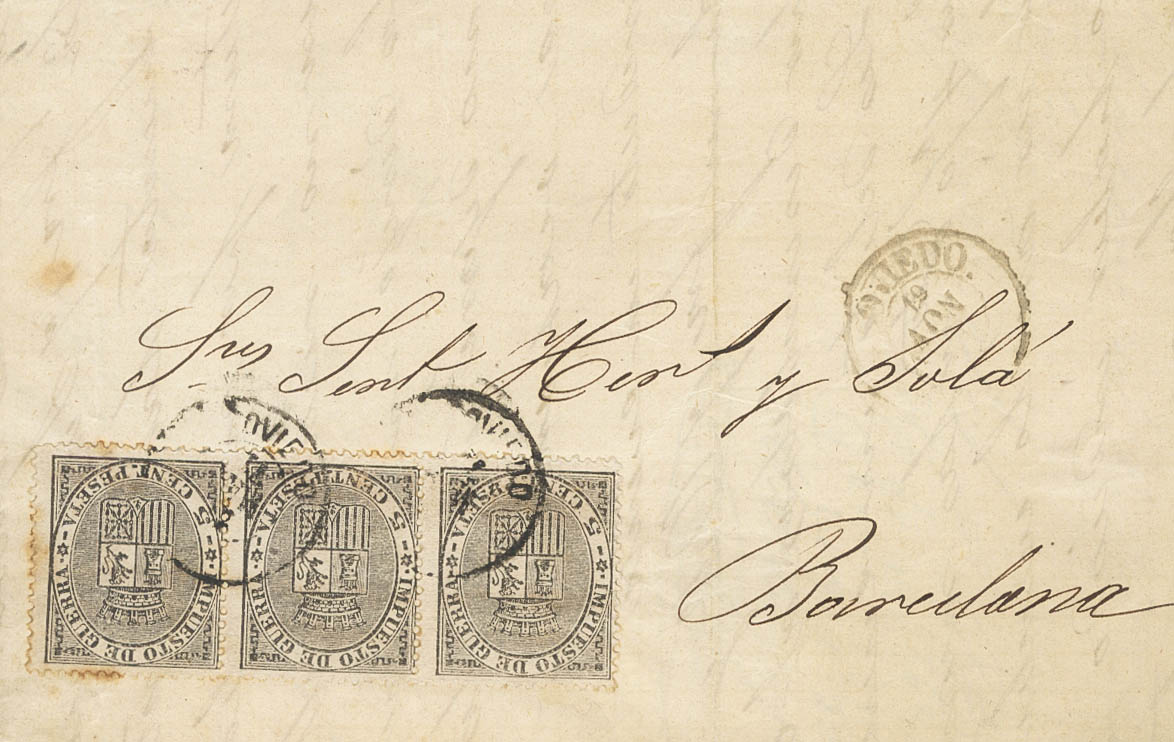 OVIEDO.
19
NOV
Sres Sent Herms y Solá
Barcelona
OVIEDO
OVIEDO
5 CENT. PESETA
IMPUESTO DE GUERRA
5 CENT. PESETA
IMPUESTO DE GUERRA
5 CENT. PESETA
IMPUESTO DE GUERRA